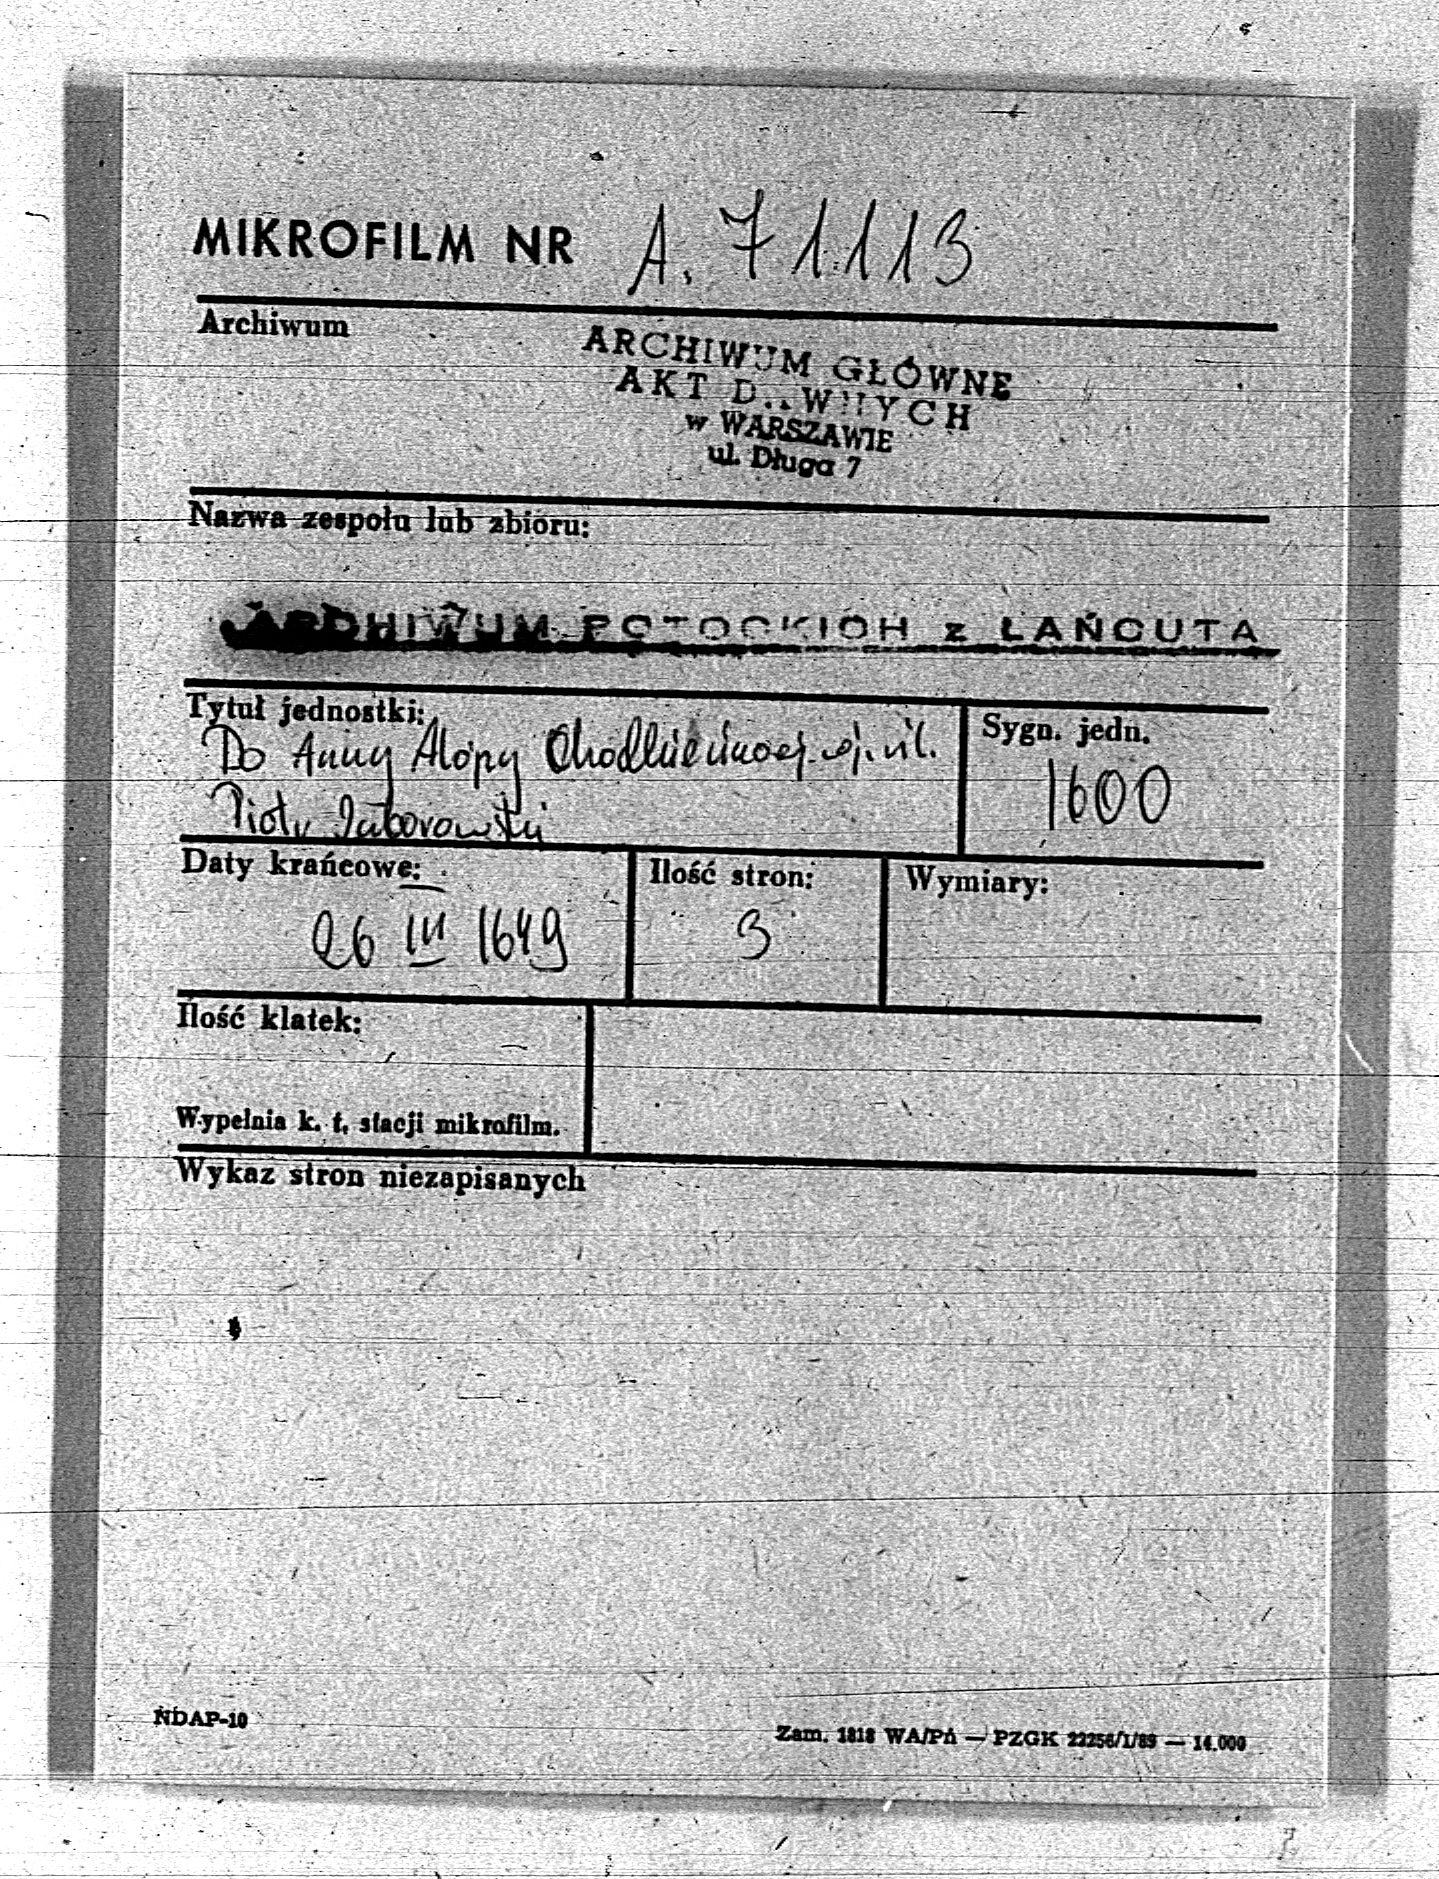 MIKROFILM NR A. 71113
Archiwum
ARCHIWUM GŁÓWNE
AKT DAWNYCH
w WARSZAWIE
ul. Długa 7
Nazwa zespołu lub zbioru:
ARCHIWUM POTOCKICH z ŁAŃCUTA
Tytuł jednostki:
Do Anny Alojzy Chodkiewiczowej woj. wil.
Piotr
Sygn. jedn.
1600
Daty krańcowe:
26 III 1649
Ilość stron:
3
Wymiary:
Ilość klatek:
Wypełnia k. t. stacji mikrofilm.
Wykaz stron niezapisanych
NDAP-10
Zam. 1818 WA/PA — PZGK 22256/1/89 — 14.000